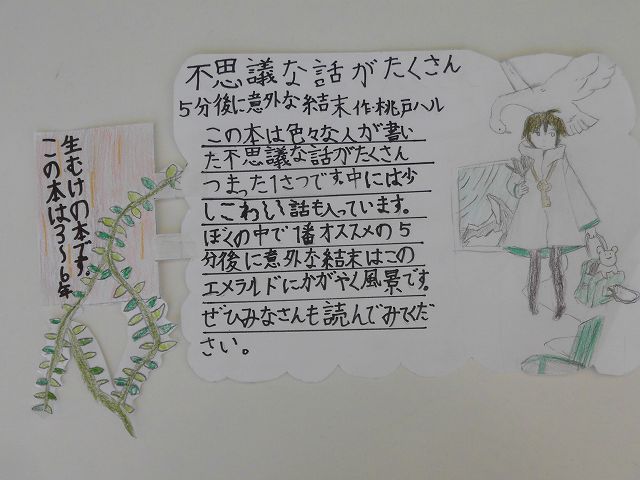 不思議な話がたくさん
5分後に意外な結末 作・桃戸ハル
この本は色々な人が書い
た不思議な話がたくさん
つまった1さつです。中には少
しこわい話も入っています。
ぼくの中で1番オススメの5
分後に意外な結末はこの
エメラルドにかがやく風景です。
ぜひみなさんも読んでみてくだ
さい。
この本は3〜6年
生むけの本です。